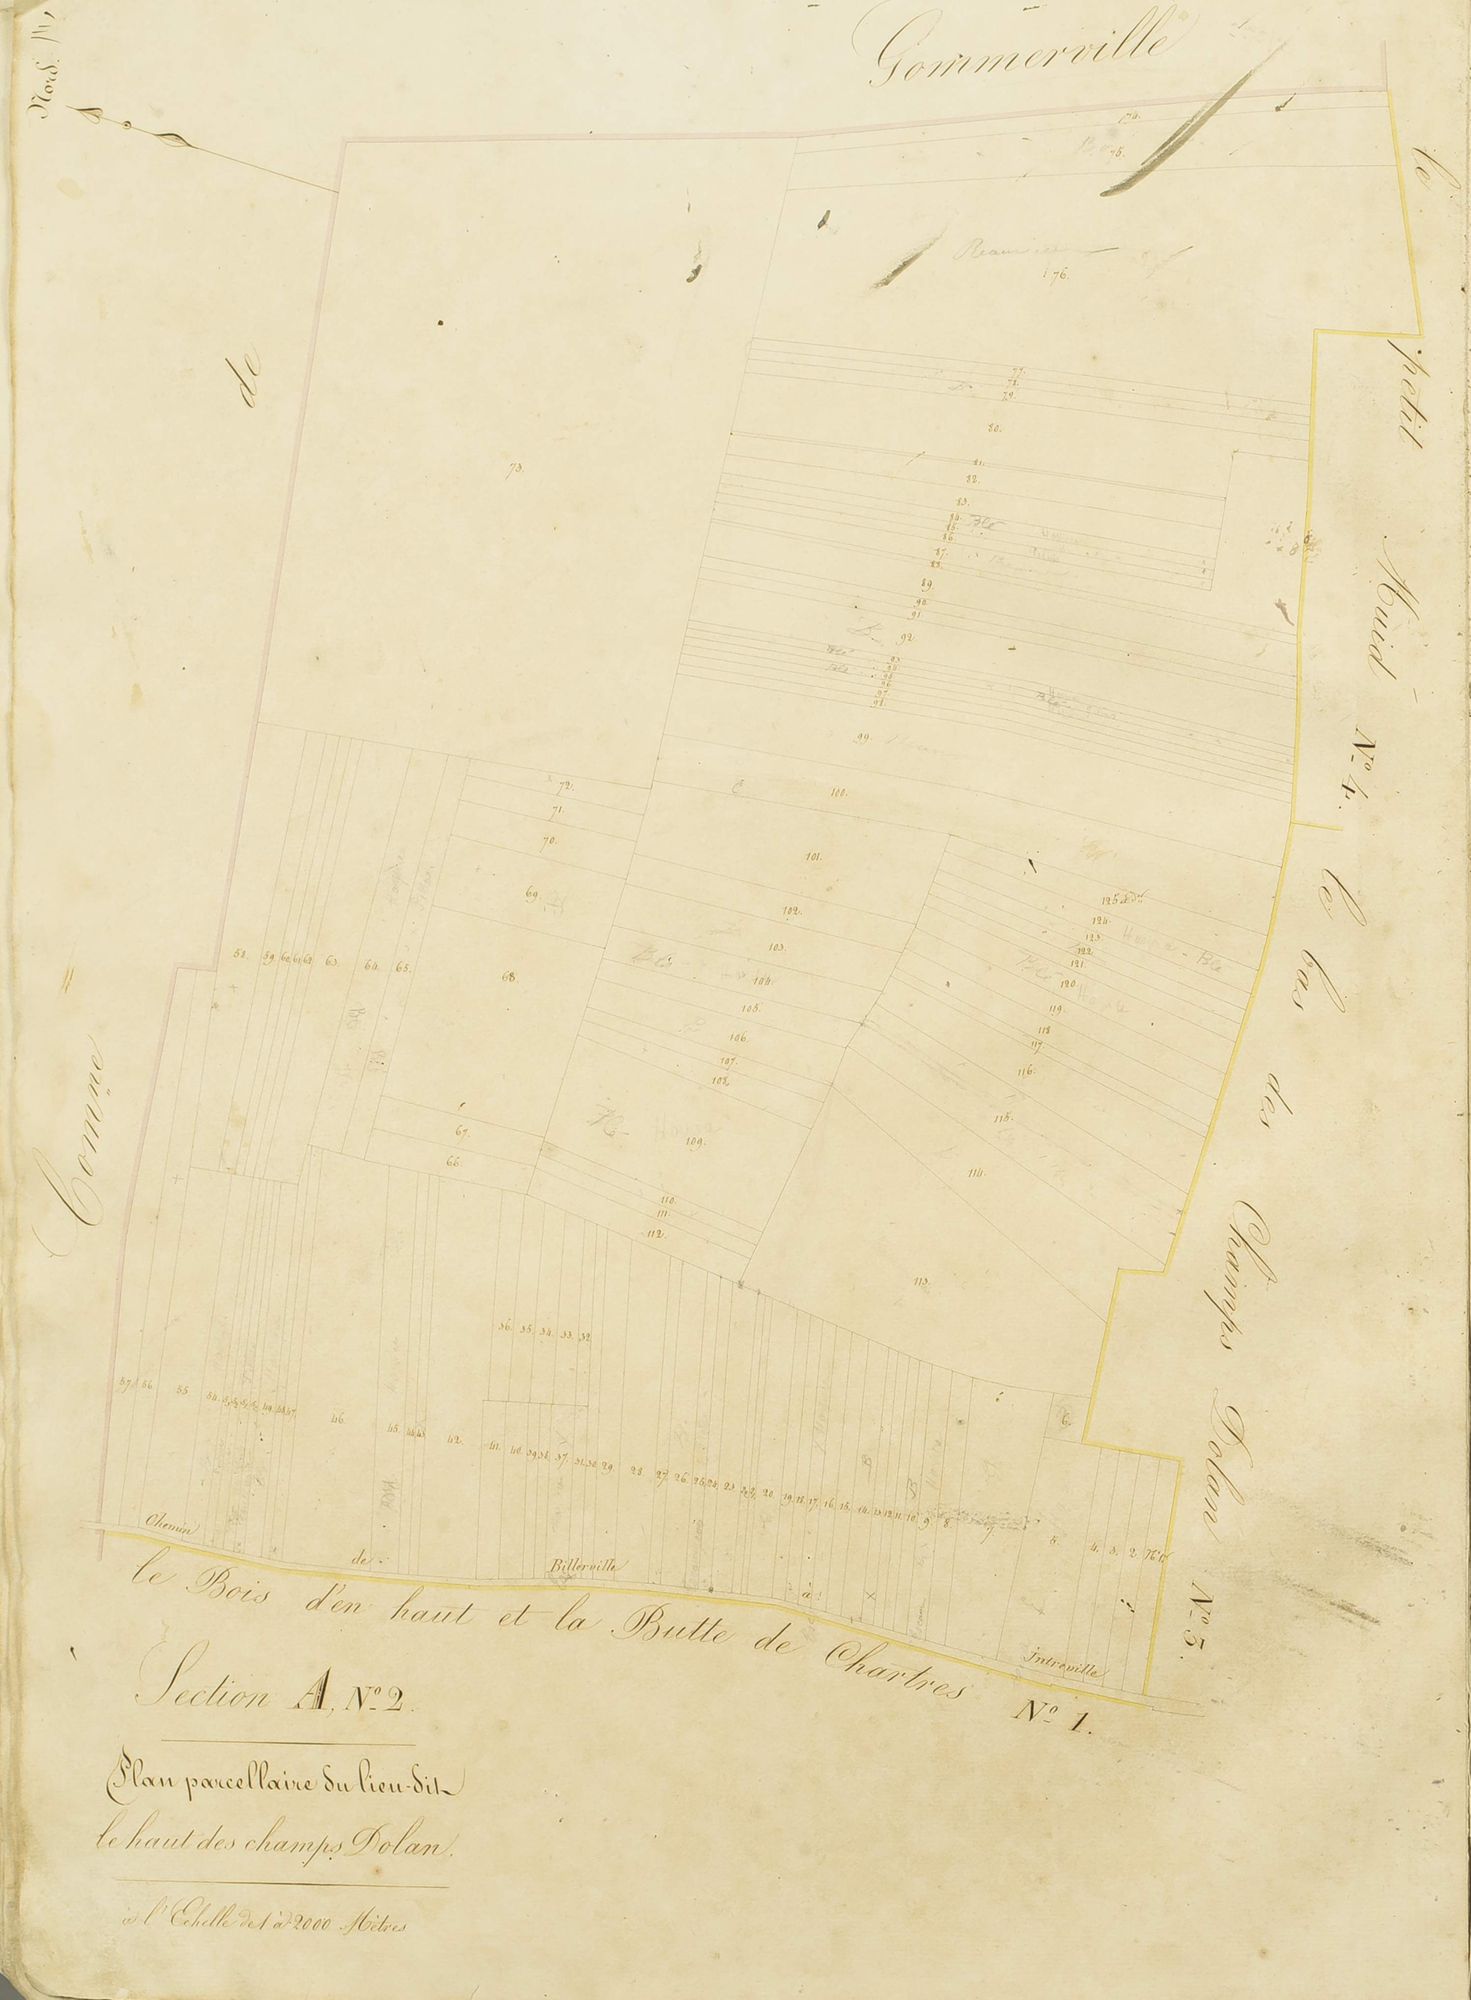 Nord.
Gommerville
le petit Muid Nº 4.
d
Commune
74.
75.
76.
77.
78.
79.
80.
81.
82.
83.
84.
85.
86.
87.
88.
89.
90.
91.
92.
93.
98.
99.
100.
73.
72.
71.
70.
69.
68.
67.
66.
101.
102.
103.
104.
105.
106.
107.
108.
109.
110.
111.
112.
113.
114.
115.
116.
117.
118.
119.
120.
121.
122.
123.
124.
125
Blé
58. 59. 60. 61. 62. 63. 64. 65.
36. 35. 34. 33. 32.
57. 56. 55. 54. 49. 48. 47. 46. 45. 44. 43. 42. 41. 40. 39. 38. 37. 31. 30. 29. 28. 27. 26. 25. 24. 23. 20. 19. 18. 17. 16. 15. 14. 13. 12. 11. 10. 9. 8. 7. 6. 5. 4. 3. 2.
le bas des Champs Dolan Nº 3.
Chemin de Billerville à Intreville
le Bois d'en haut et la Butte de Chartres Nº 1.
Section A, Nº 2.
Plan parcellaire du lieu-dit
le haut des champs Dolan.
à l'Echelle de 1 à 2000 Mètres